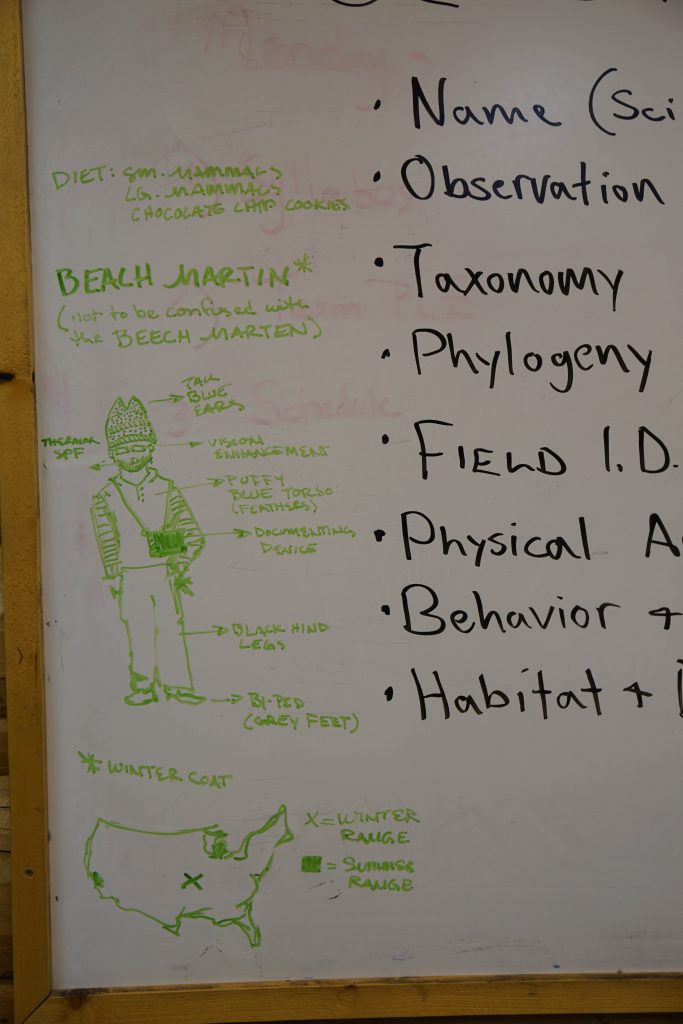 DIET: SM. MAMMALS
LG. MAMMALS
CHOCOLATE CHIP COOKIES
BEACH MARTIN*
(not to be confused with
the BEECH MARTEN)
TALL
BLUE
EARS
THERMAL
SPF
VISION
ENHANCEMENT
PUFFY
BLUE TORSO
(FEATHERS)
DOCUMENTING
DEVICE
BLACK HIND
LEGS
BI-PED
(GREY FEET)
* WINTER COAT
X = WINTER
RANGE
= SUMMER
RANGE
• Name (Sci
• Observation
• Taxonomy
• Phylogeny
• FIELD I.D.
• Physical A
• Behavior +
• Habitat +
Monday
Syllabus
Schedule